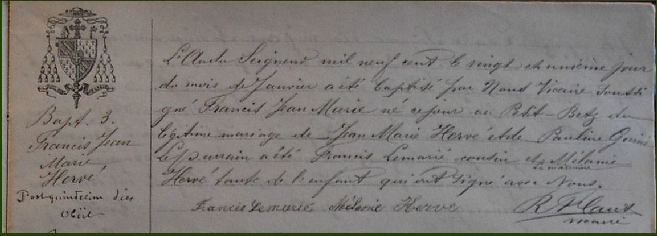 Bapt. 3.
Francis Jean
Marie
Hervé
Post quintecim dies
L'An du Seigneur mil neuf cent le vingt et unième jour
du mois de Janvier a été baptisé par Nous Vicaire soussi
gné Francis Jean Marie né ce jour au Petit-Betz du
légitime mariage de Jean Marie Hervé et de Pauline
Le parrain a été Francis Lemarié cousin et la marraine Mélanie
Hervé tante de l'enfant qui ont signé avec Nous.
Francis Lemarié Mélanie Hervé